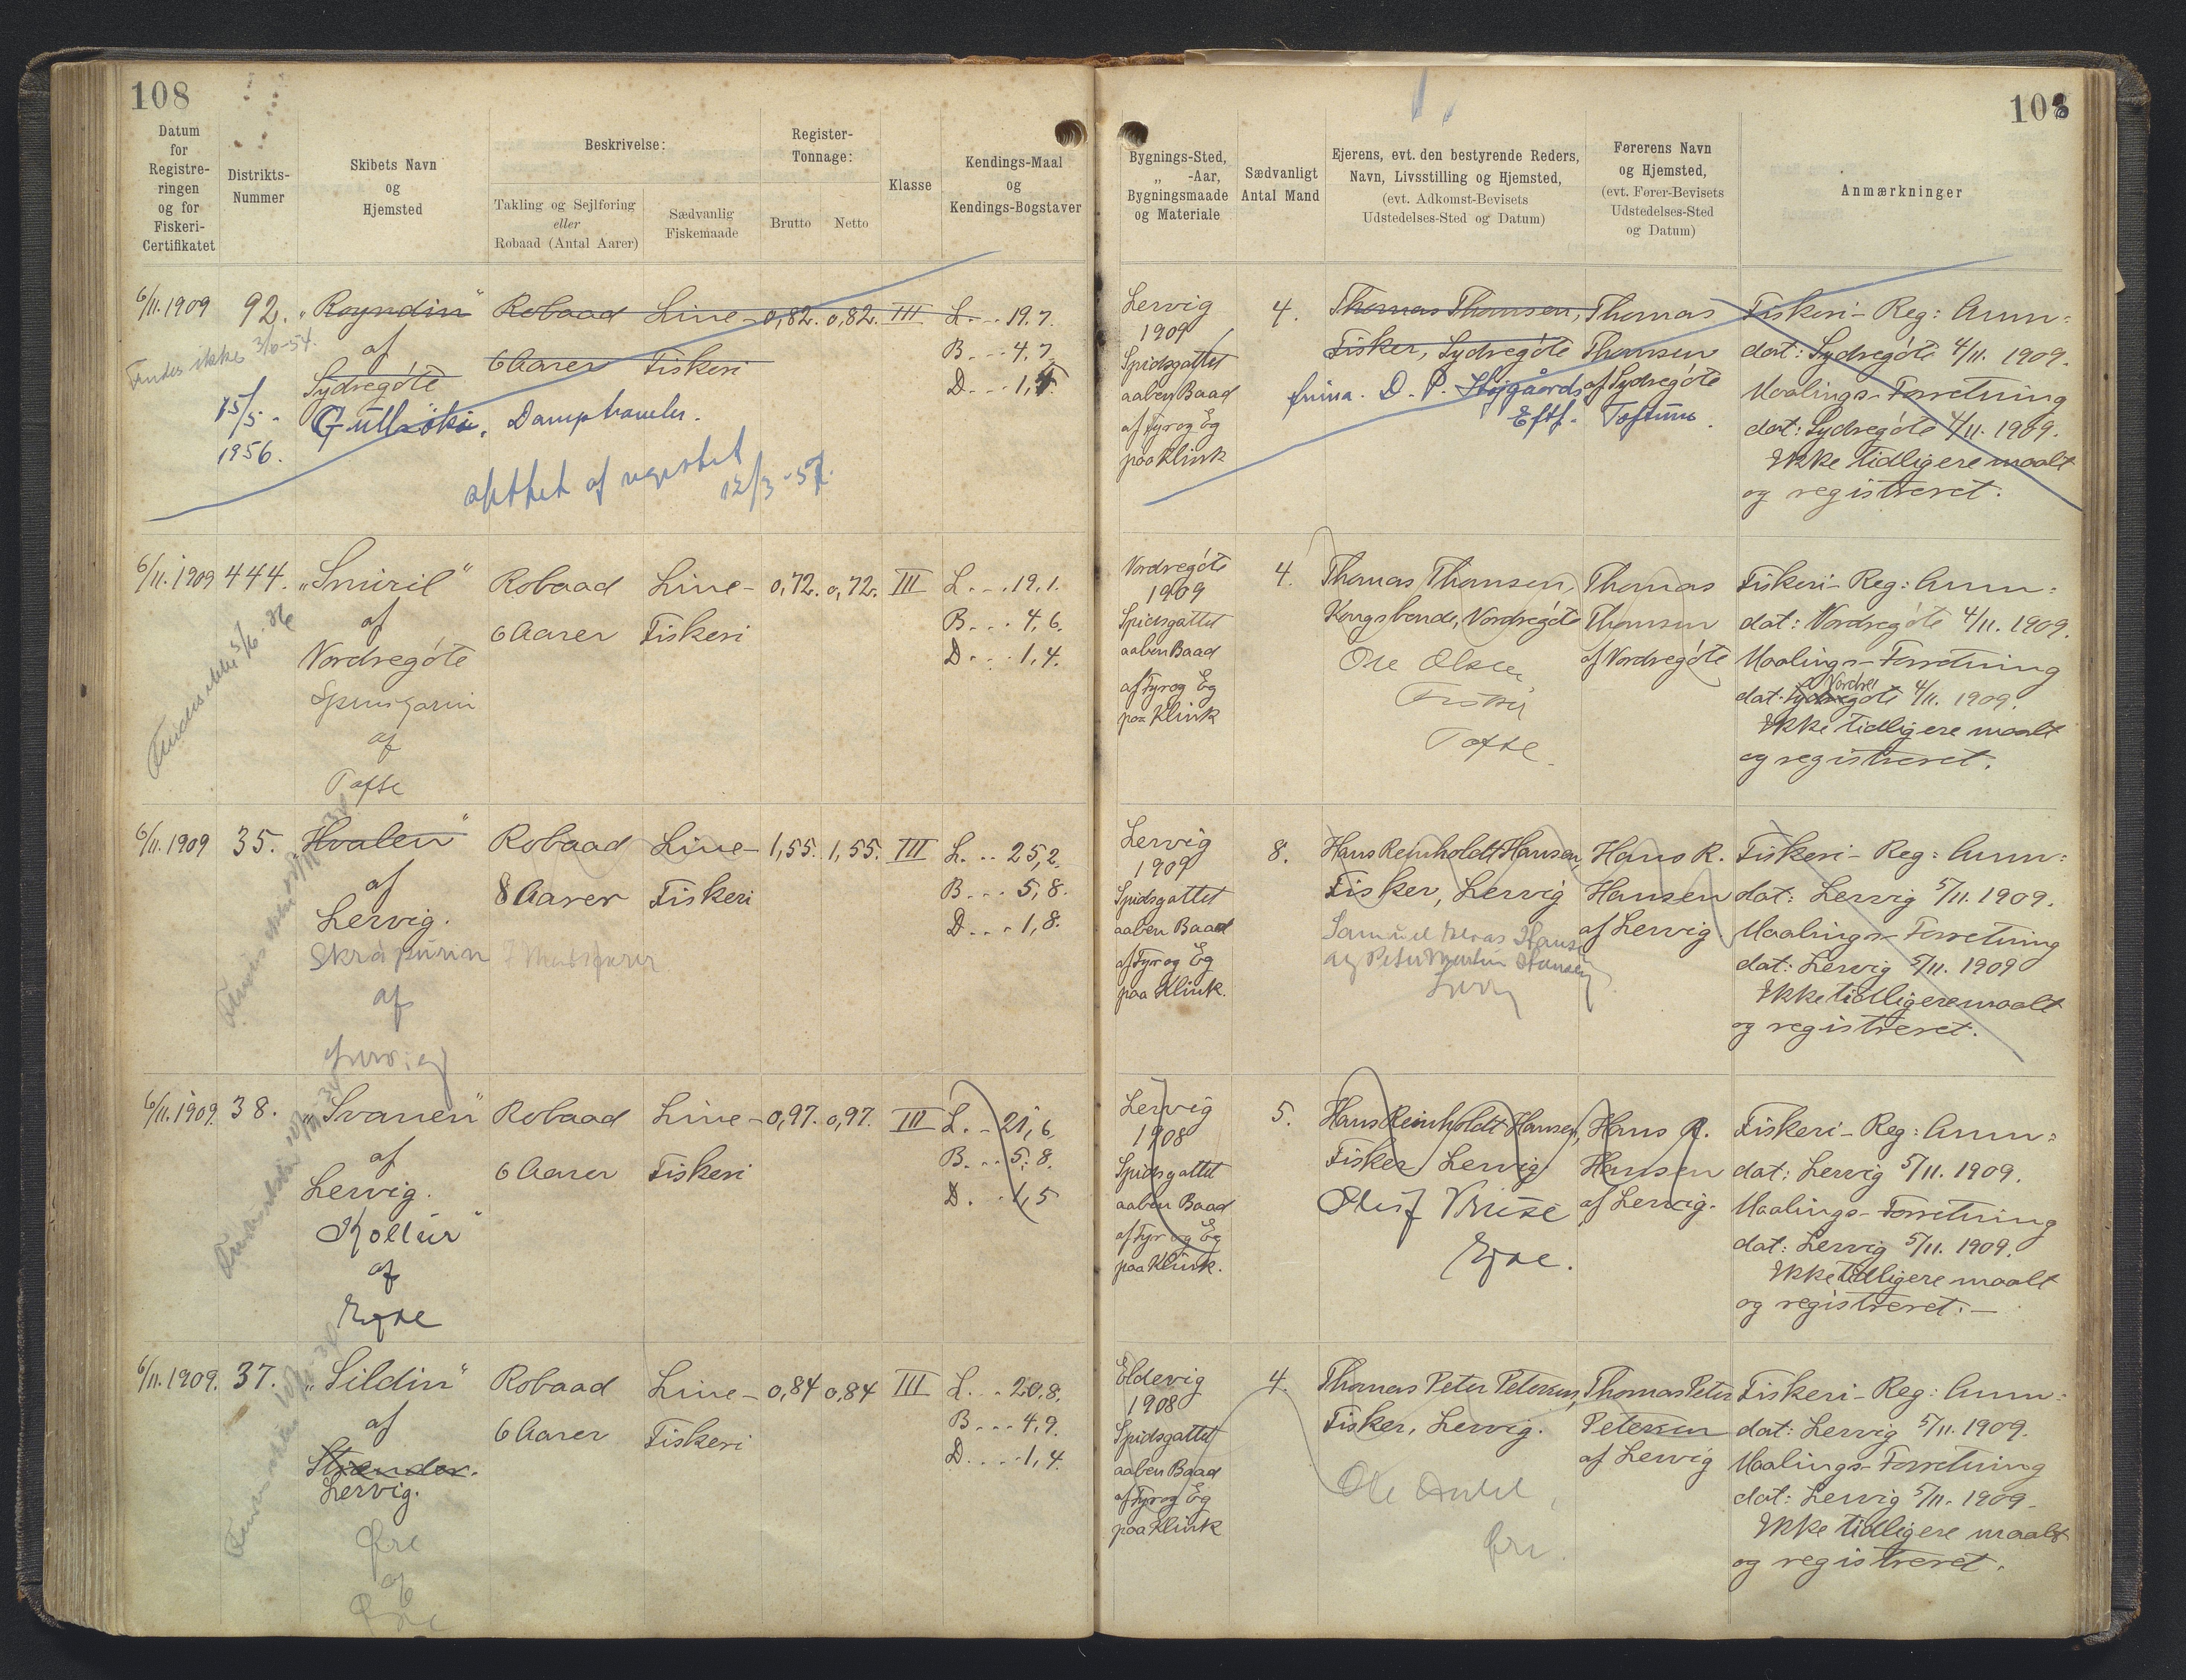 108
108
Datum
for
Registre-
ringen
og for
Fiskeri-
Certifikatet
Distrikts-
Nummer
Skibets Navn
og
Hjemsted
Beskrivelse:
Takling og Sejlføring
eller
Robaad (Antal Aarer)
Sædvanlig
Fiskemaade
Register-
Tonnage:
Brutto Netto
Klasse
Kendings-Maal
og
Kendings-Bogstaver
Bygnings-Sted,
„ -Aar,
Bygningsmaade
og Materiale
Sædvanligt
Antal Mand
Ejerens, evt. den bestyrende Reders,
Navn, Livsstilling og Hjemsted,
(evt. Adkomst-Bevisets
Udstedelses-Sted og Datum)
Førerens Navn
og Hjemsted,
(evt. Fører-Bevisets
Udstedelses-Sted
og Datum)
Anmærkninger
6/11.1909
92.
„Royndin"
af
Sydregøte
Findes ikke 3/6-54.
15/5-
1956.
Robaad
6 Aarer
Line-
Fiskeri
0,82. 0,82. III
L. . . 19.7.
B. . . 4,7.
D. . . 1,4.
Damptrawler.
slettet af registret
12/3-57.
Lervig
1909
Spidsgattet
aaben Baad
af Fyr og Eg
paa Klink
4.
Thomas Thomsen,
Fisker, Sydregøte
firma. D. P. Højgaards
Eftf.
Thomas
Thomsen
af Sydregøte
Toftum.
Fiskeri-Reg: Anm:
dat: Sydregøte 4/11. 1909.
Maalings-Forretning
dat: Sydregøte 4/11. 1909.
Ikke tidligere maalt
og registreret.
6/11.1909
444.
„Smiril"
af
Nordregøte
af
Tofte
Robaad
6 Aarer
Line-
Fiskeri
0,72. 0,72. III
L. . . 19,1.
B. . . 4,6.
D. . . 1,4.
Nordregøte
1909
Spidsgattet
aaben Baad
af Fyr og Eg
paa Klink
4.
Thomas Thomsen,
Kongsbonde, Nordregøte
Ole Olsen
Fisker
Tofte.
Thomas
Thomsen
af Nordregøte
Fiskeri-Reg: Anm:
dat: Nordregøte 4/11. 1909.
Maalings-Forretning
Nordre
dat: Sydregøte 4/11. 1909.
Ikke tidligere maalt
og registreret.
6/11.1909
35.
Hvalen"
af
Lervig.
Skrápurin
af
Lervig
Robaad
8 Aarer
Line-
Fiskeri
1,55. 1,55. III
L. . . 25,2.
B. . . 5,8.
D. . . 1,8.
Lervig
1909
Spidsgattet
aaben Baad
af Fyr og Eg
paa Klink.
8.
Hans Reinholdt Hansen,
Fisker, Lervig
Samuel Elias Hansen
og Peter Martin Hansen
Hans R.
Hansen
af Lervig
Fiskeri-Reg: Anm:
dat: Lervig 5/11. 1909.
Maalings-Forretning
dat: Lervig 5/11. 1909
Ikke tidligere maalt
og registreret.
6/11.1909.
38.
„Svanen"
af
Lervig.
Kollur"
af
Ejde
Robaad
6 Aarer
Line-
Fiskeri
0,97. 0,97. III
L. . 21,6.
B. . . 5,8.
D. . . 1,5
Lervig
1908
Spidsgattet
aaben Baad
af Fyr og Eg
paa Klink.
5.
Hans Reinholdt Hansen,
Fisker, Lervig
Ejde.
Hans R.
Hansen
af Lervig.
Fiskeri-Reg: Anm:
dat: Lervig 5/11. 1909.
Maalings-Forretning
dat: Lervig 5/11. 1909.
Ikke tidligere maalt
og registreret.—
6/11.1909.
37.
„Sildin"
af
Strender.
Lervig.
af
Robaad
6 Aarer
Line-
Fiskeri
0,84 0,84 III
L. . . 20,8.
B. . . 4,9.
D. . . . 1,4.
Eldevig
1908
Spidsgattet
aaben Baad
af Fyr og Eg
paa Klink
4.
Thomas Peter Petersen,
Fisker, Lervig.
Thomas Peter
Petersen
af Lervig
Fiskeri-Reg: Anm:
dat: Lervig 5/11. 1909.
Maalings-Forretning
dat: Lervig 5/11. 1909.
Ikke tidligere maalt
og registreret.